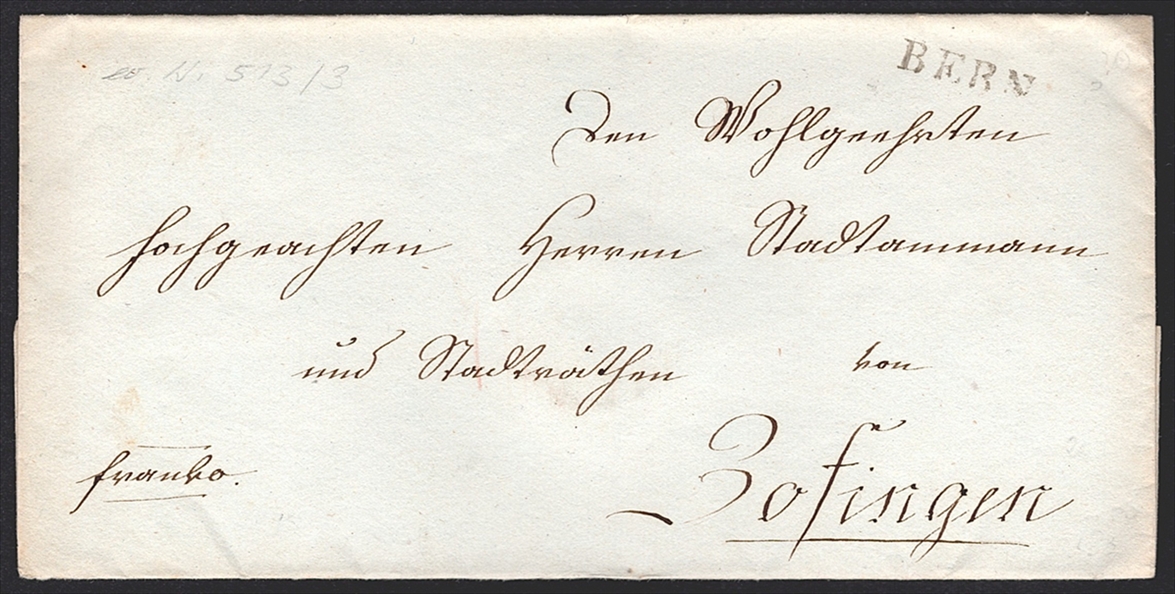 BERN
No. 513/3
Den Wohlgeehrten
hochgeachten Herren Stadtammann
und Stadträthen von
Zofingen
franko.